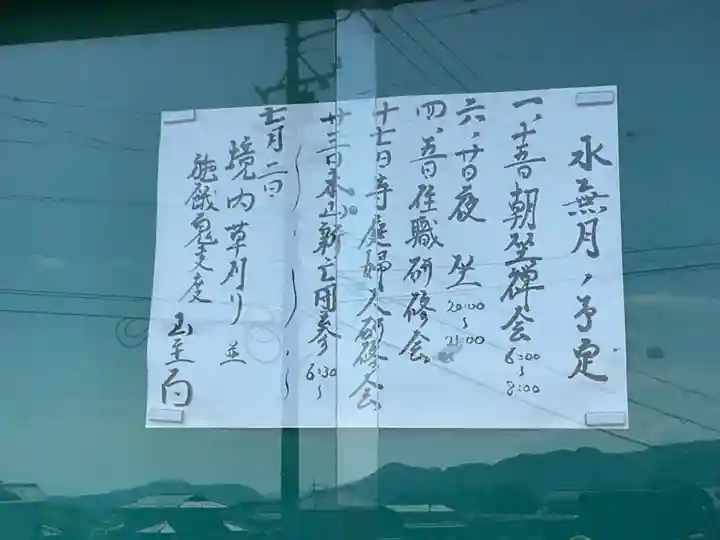 水無月ノ予定
一、十五日朝坐禅会 6:00～8:00
六、廿日夜 坐 20:00～21:00
四、五日住職研修会
十七日寺庭婦人研修会
廿三日本山新亡回参 6:30～
～・～・～・～
七月二日
境内草刈り並
施餓鬼支度
山主 白